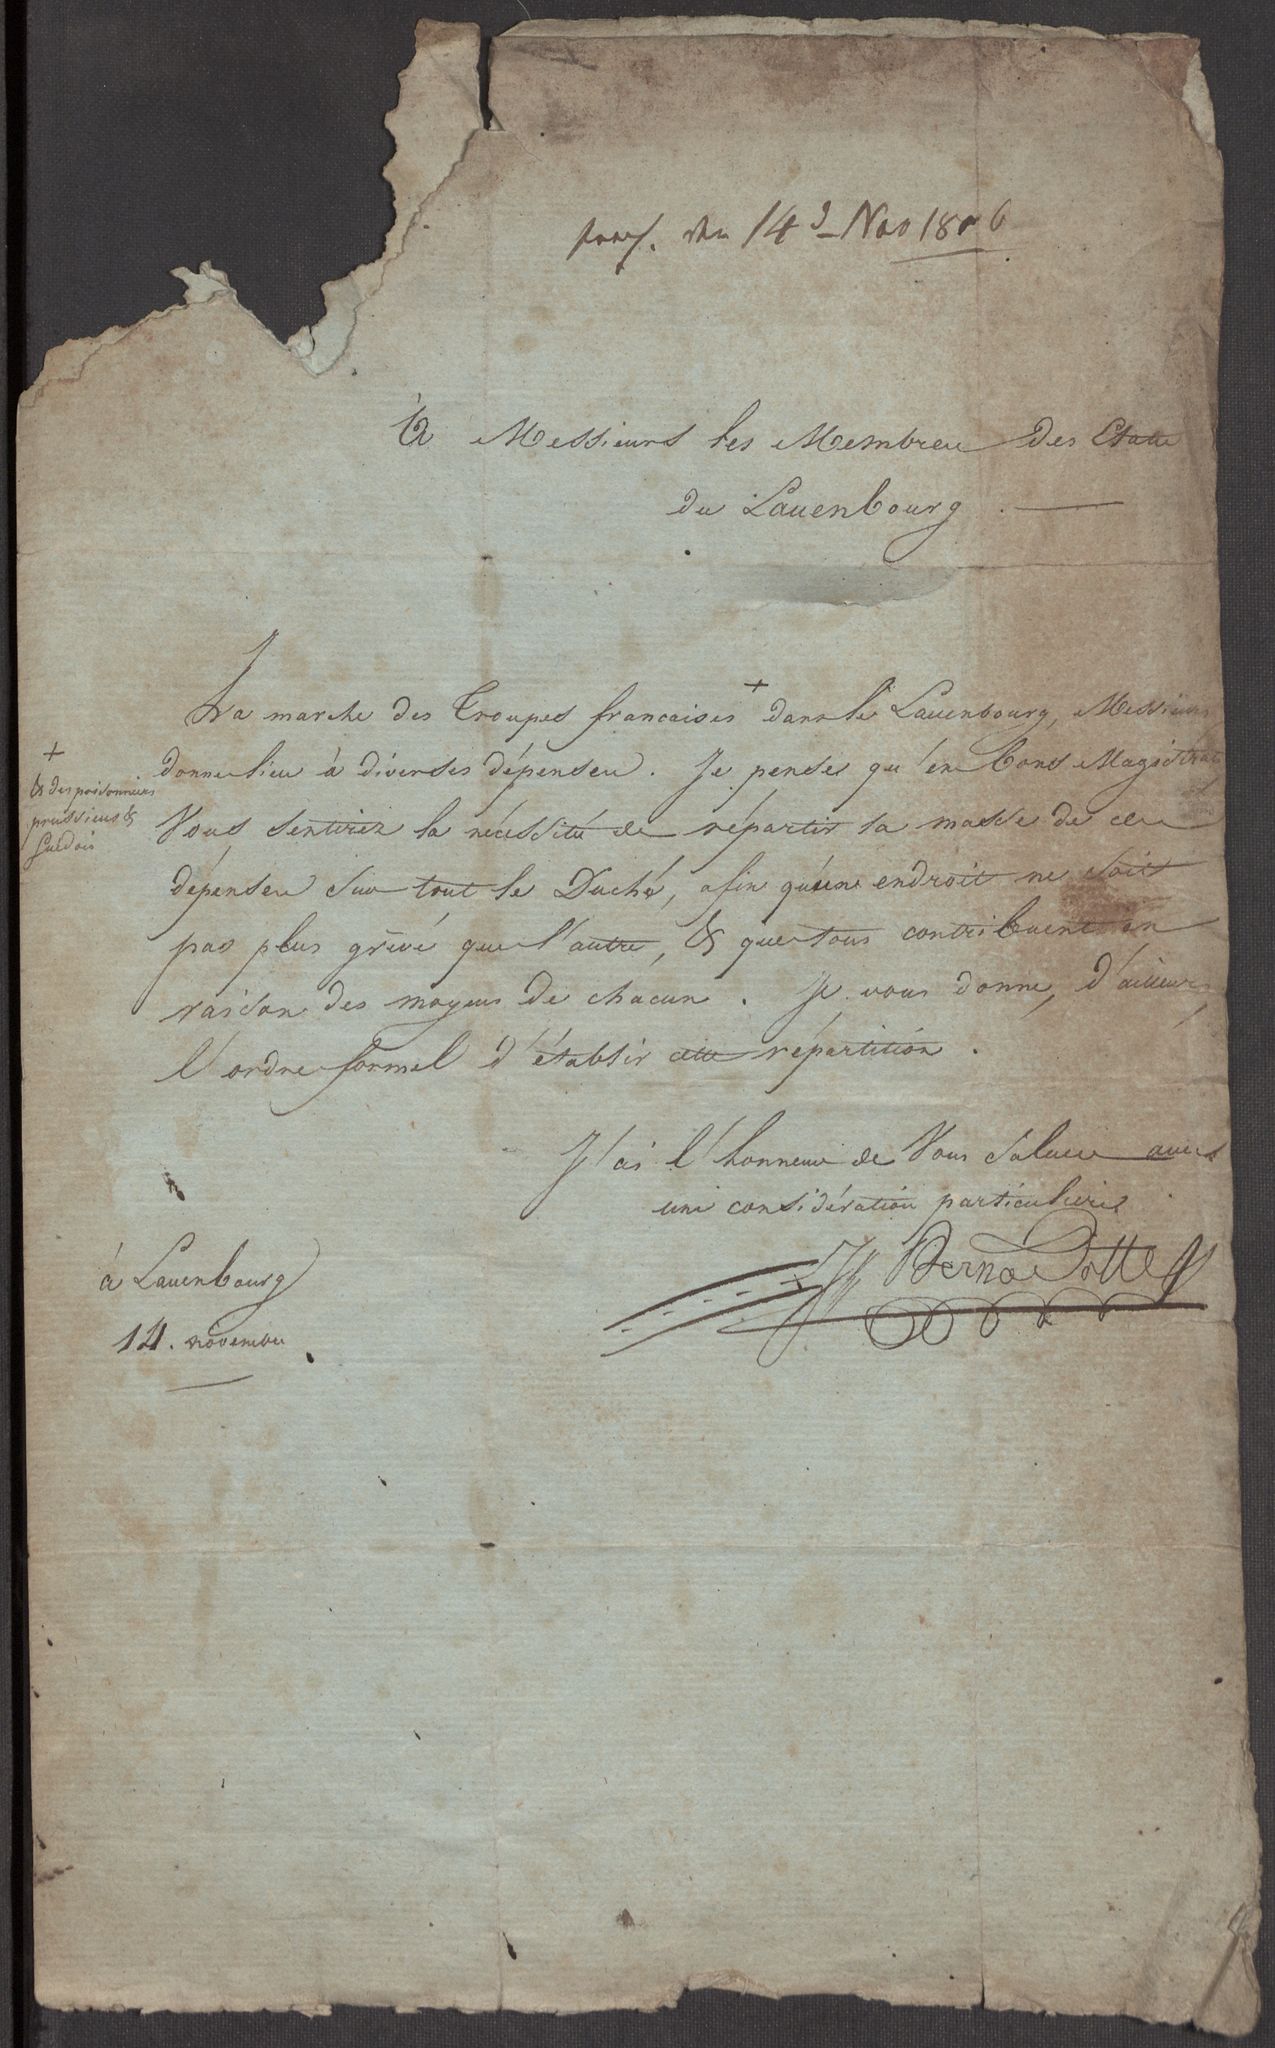 den 14 Nov 1806
À Messieurs les Membres des Etats
du Lauenbourg.
La marche des Troupes francaises + dans le Lauenbourg, Messieurs
donne lieu à diverses dépenses. Je pense qu'en bons Magistrats
Vous sentirez la nécessité de répartir la masse de ces
dépenses sur tout le Duché, afin qu'un endroit ne soit
pas plus grévé que l'autre, & que tous contribuent en
raison des moyens de chacun. Je vous donne, d'ailleurs,
l'ordre formel d'établir cette répartition.
+
& des prisonniers
prussiens &
suédois
J'ai l'honneur de Vous saluer avec
une considération particulière
Bernadotte
à Lauenbourg
14. novembre